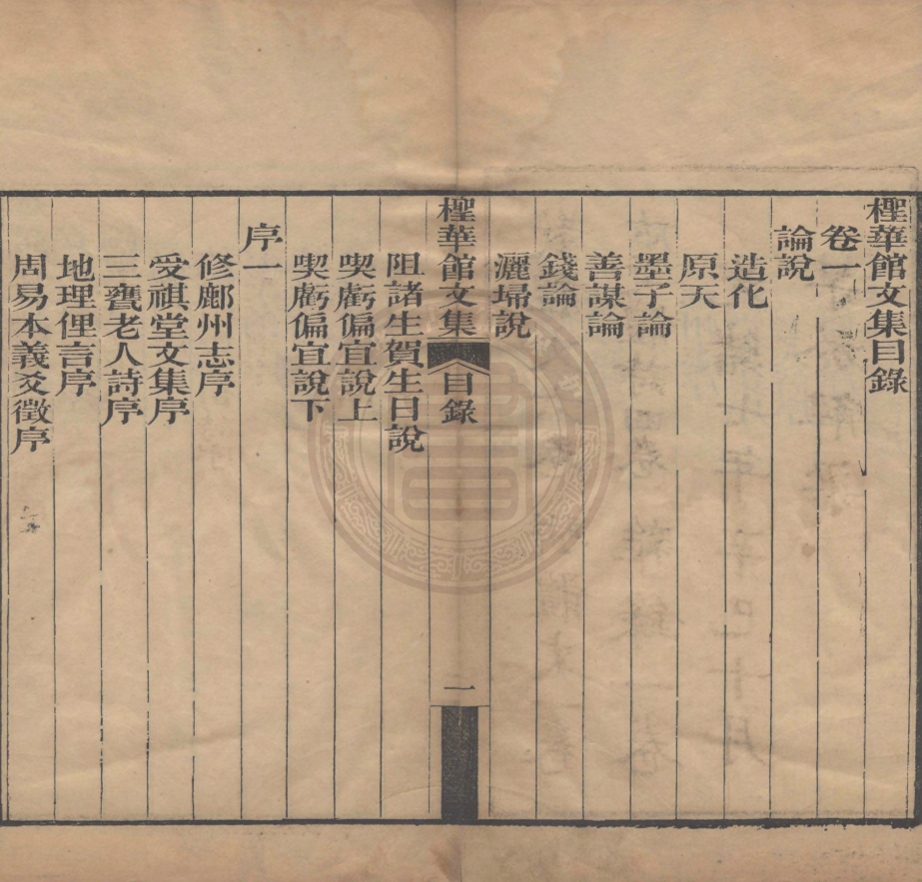 檉華館文集目錄
卷一
論說
造化
原天
墨子論
善謀論
錢論
灑埽說
檉華館文集
目錄
一
阻諸生賀生日說
喫虧偏宜說上
喫虧偏宜說下
序一
修鄜州志序
受祺堂文集序
三甕老人詩序
地理俚言序
周易本義爻徵序